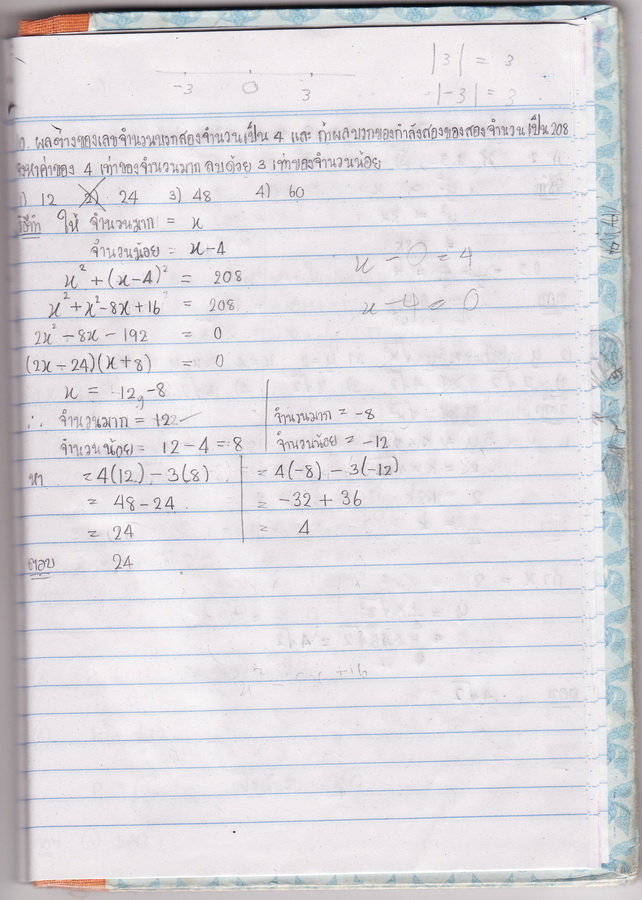 |3| = 3
-3 0 3
|-3| = 3
0. ผลต่างของเลขจำนวนบวกสองจำนวนเป็น 4 และ ถ้าผลบวกของกำลังสองของสองจำนวนเป็น 208
จงหาค่าของ 4 เท่าของจำนวนมาก ลบด้วย 3 เท่าของจำนวนน้อย
1) 12 2) 24 3) 48 4) 60
วิธีทำ ให้ จำนวนมาก = x
จำนวนน้อย = x-4
x - 0 = 4
x² + (x-4)² = 208
x - 4 = 0
x² + x² - 8x + 16 = 208
2x² - 8x - 192 = 0
(2x - 24)(x + 8) = 0
x = 12, -8
∴ จำนวนมาก = 12 จำนวนมาก = -8
จำนวนน้อย = 12 - 4 = 8 จำนวนน้อย = -12
หา = 4(12) - 3(8) = 4(-8) - 3(-12)
= 48 - 24 = -32 + 36
= 24 = 4
ตอบ 24